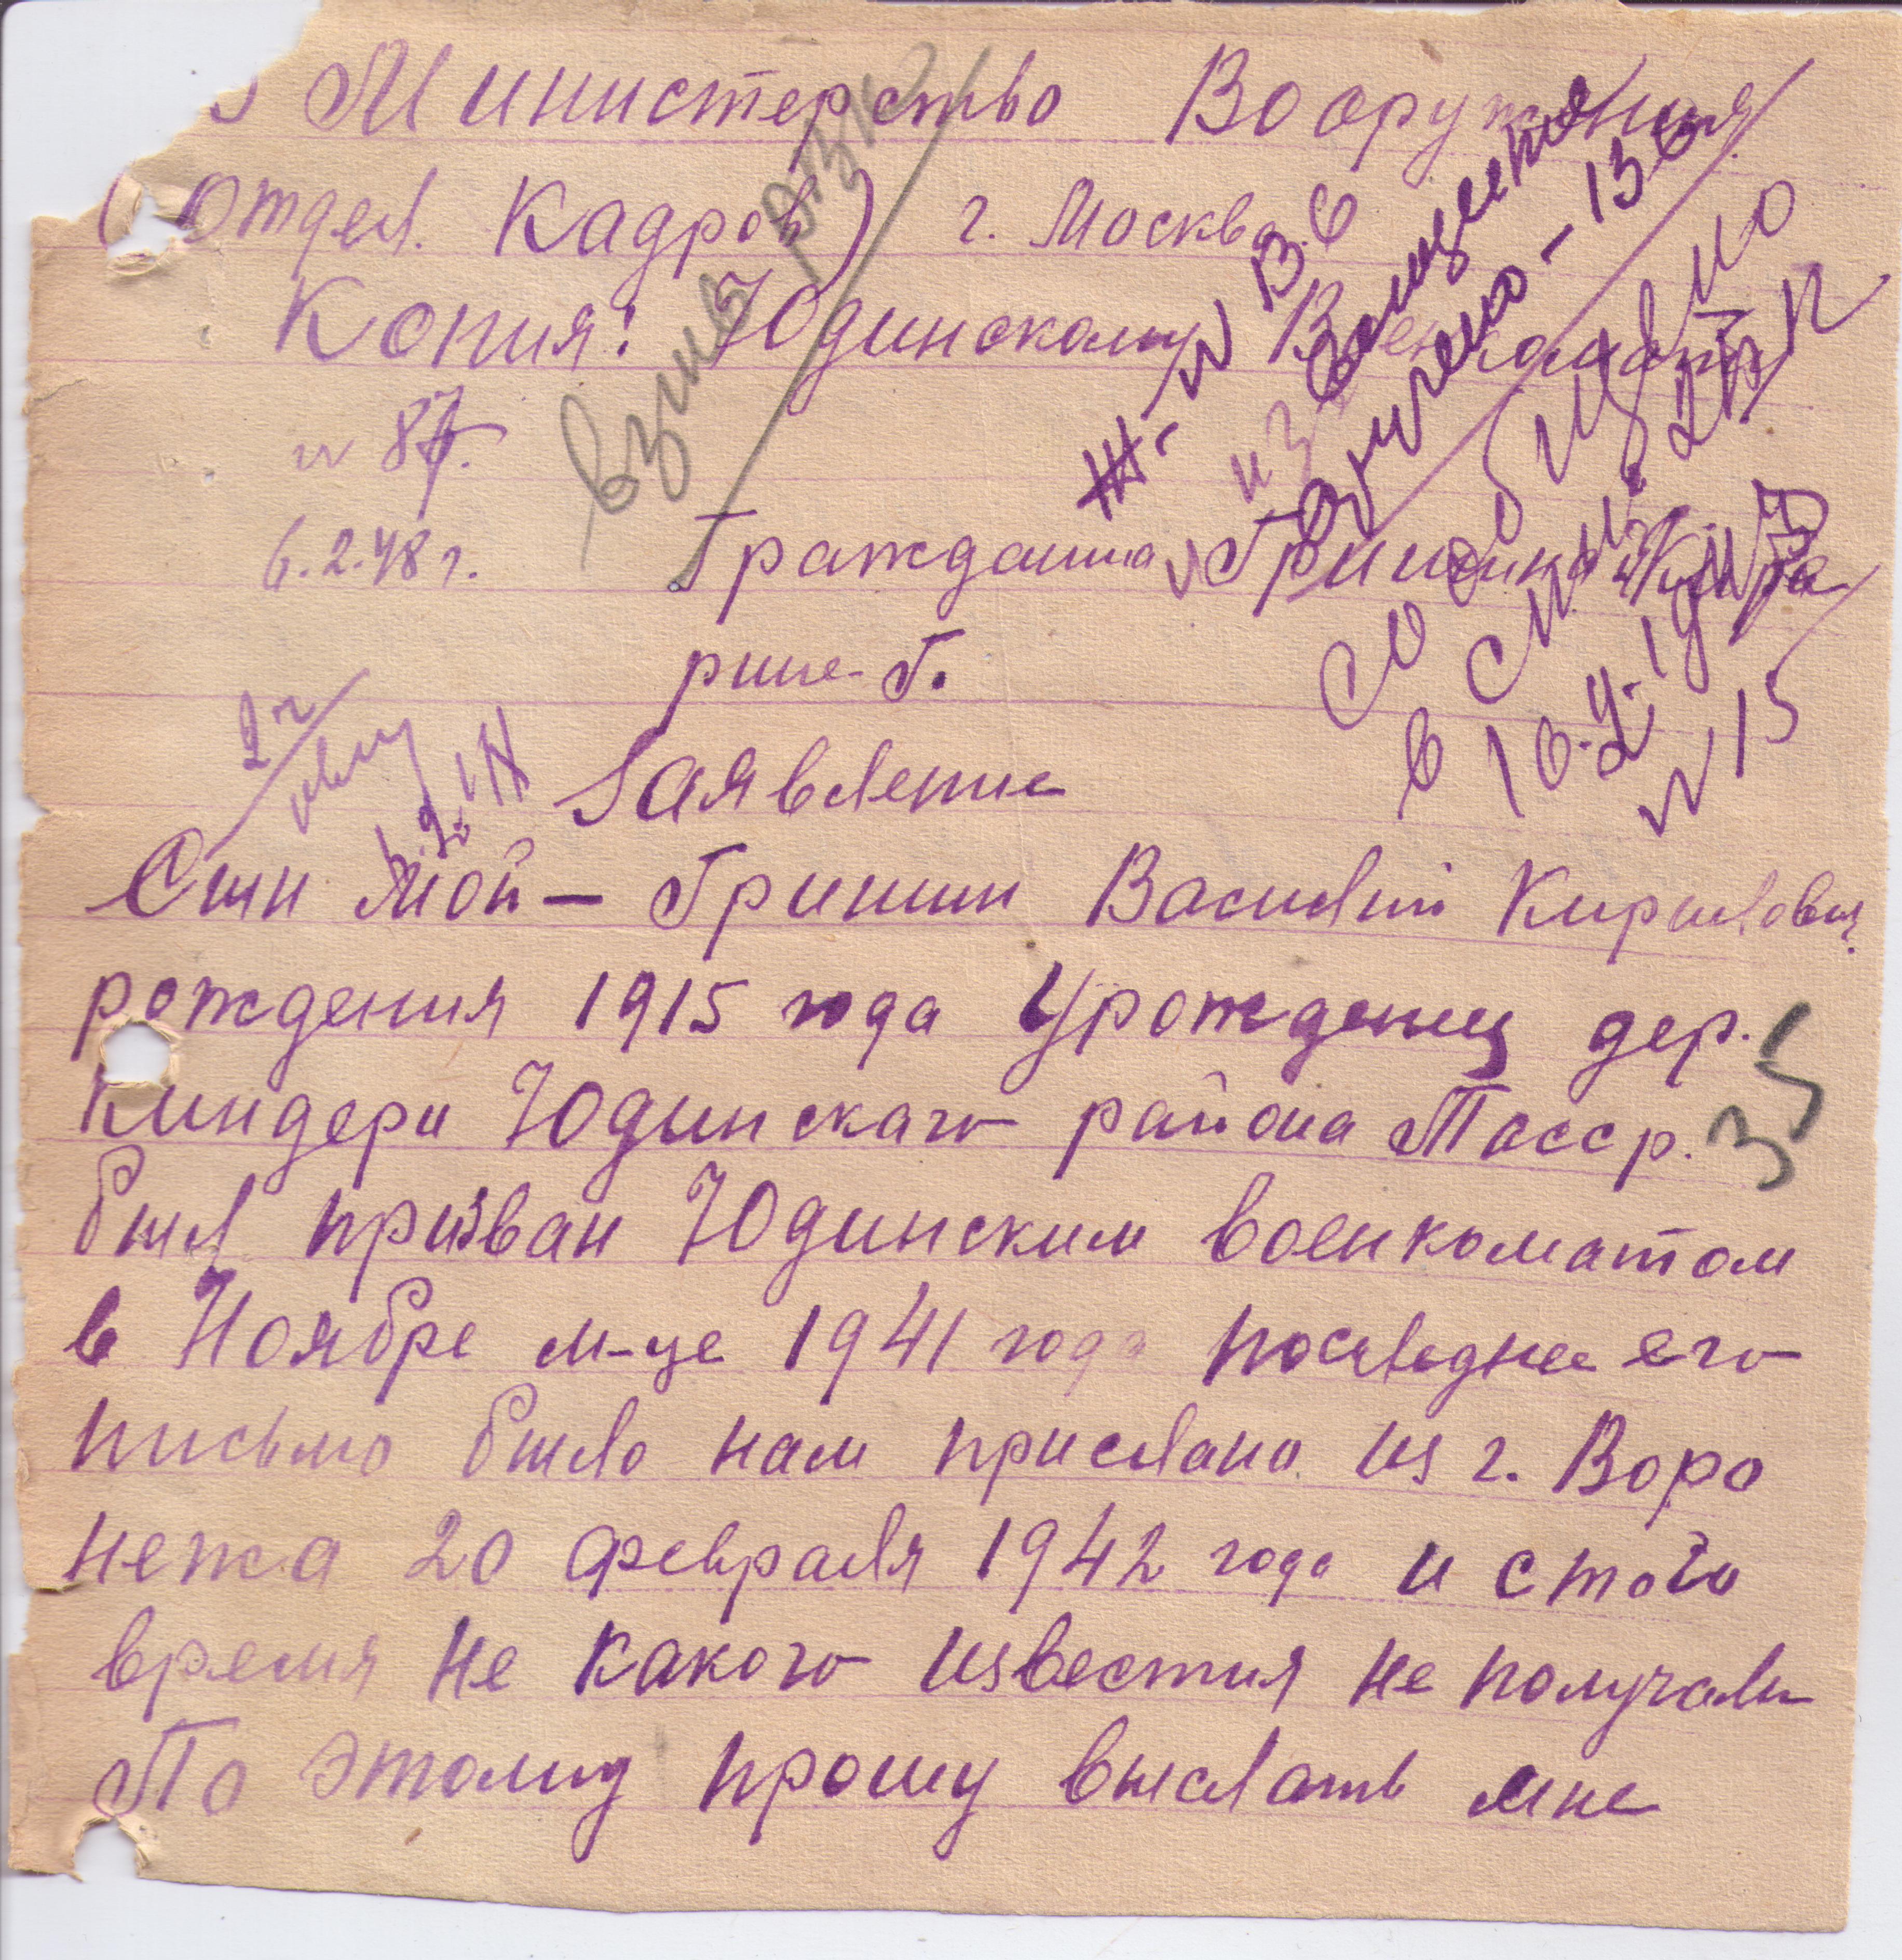 В Министерство Вооружения
(отдел. Кадров) г. Москва.
Копия: Юдинскому Военкомату
87.
6.2.48 г.
Гражданина Гришина
рине Г.
Заявление
Сын мой — Гришин Василий Кирилович
рождения 1915 года Урожденец дер.
Киндери Юдинскаго района Тасср.
35
был призван Юдинским военкоматом
в Ноябре м-це 1941 года последнее его
письмо было нам прислано из г. Воро
нежа 20 февраля 1942 года и стого
время не какого известия не получали
По этому прошу выслать мне
взпв
сообщено
в
№ 15